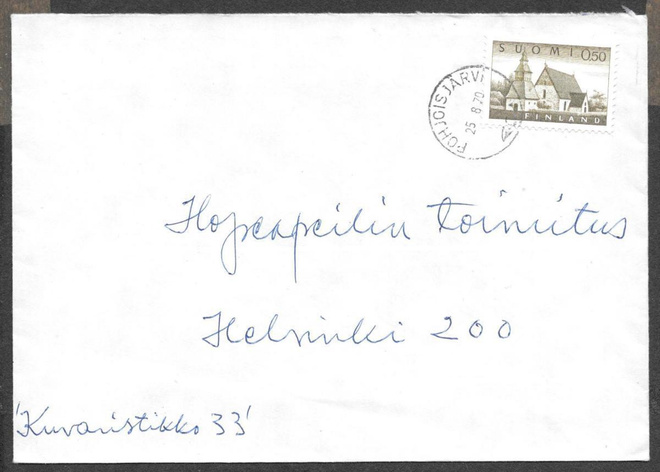 SUOMI 0,50
FINLAND
POHJOISJÄRVI
25.8.70
Hopeapeilin toimitus
Helsinki 200
'Kuvaristikko 33'